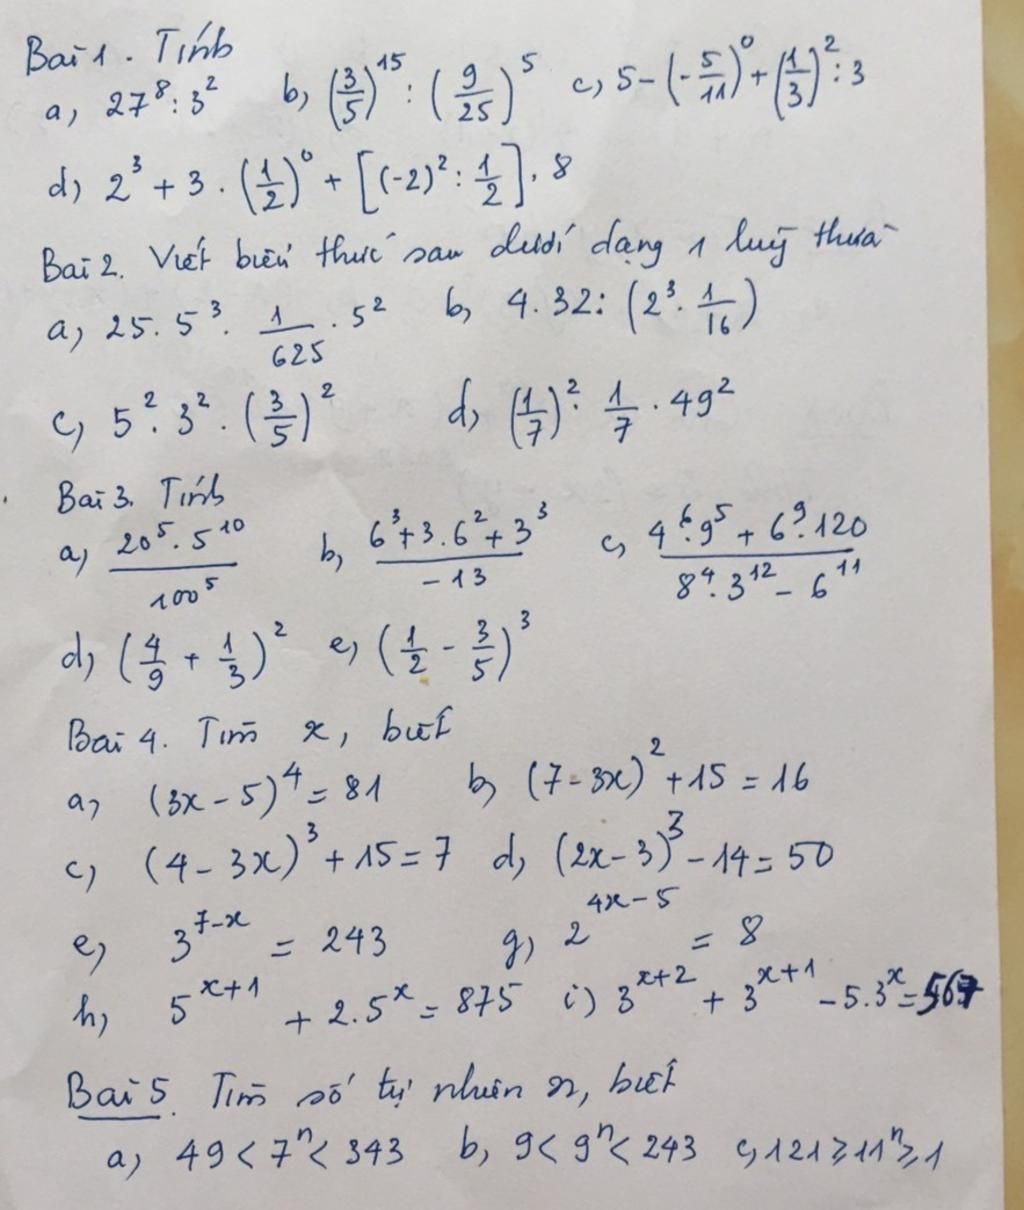 Bài 1. Tính
a, 27⁸ : 3²   b, (3/5)¹⁵ : (9/25)⁵   c, 5 - (-5/11)⁰ + (1/3)² : 3
d, 2³ + 3 . (1/2)⁰ + [(-2)² : 1/2] . 8
Bài 2. Viết biểu thức sau dưới dạng 1 luỹ thừa
a, 25 . 5³ . 1/625 . 5²   b, 4 . 32 : (2³ . 1/16)
c, 5² . 3² . (3/5)²   d, (1/7)² . 1/7 . 49²
Bài 3. Tính
a, 20⁵ . 5¹⁰ / 100⁵   b, 6³ + 3 . 6² + 3³ / -13   c, 4⁶ . 9⁵ + 6⁹ . 120 / 8⁴ . 3¹² - 6¹¹
d, (4/9 + 1/3)²   e, (1/2 - 3/5)³
Bài 4. Tìm x, biết
a, (3x - 5)⁴ = 81   b, (7 - 3x)² + 15 = 16
c, (4 - 3x)³ + 15 = 7   d, (2x - 3)³ - 14 = 50
e, 3^(7-x) = 243   g, 2^(4x-5) = 8
h, 5^(x+1) + 2.5^x = 875   i) 3^(x+2) + 3^(x+1) - 5.3^x = 567
Bài 5. Tìm số tự nhiên n, biết
a, 49 < 7ⁿ < 343   b, 9 < 9ⁿ < 243   c, 121 ⩾ 11ⁿ ⩾ 1